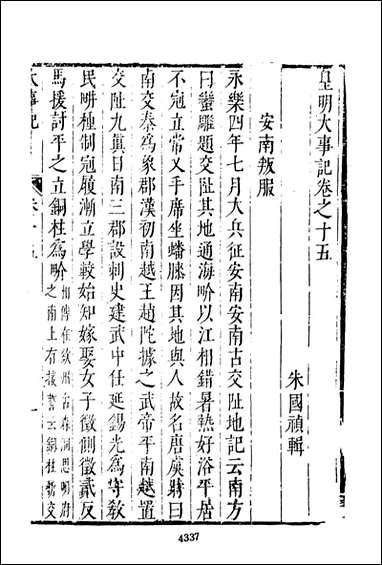 皇明大事記卷之十五
朱國禎輯
安南叛服
永樂四年七月大兵征安南安南古交阯地記云南方
曰蠻雕題交阯其地通海畍以江相錯暑熱好浴平居
不冠立常叉手席坐蟠膝因其地與人故名唐虞時曰
南交秦爲象郡漢初南越王趙陀據之武帝平南越置
交阯九真日南三郡設刺史建武中任延錫光爲守教
民畊種制冠履漸立學較始知嫁娶女子徵側徵貳反
馬援討平之立銅柱爲畍相傳在欽州古森洞思明府
之南上有援誓云銅柱折交
大事記
卷十五
一
4337